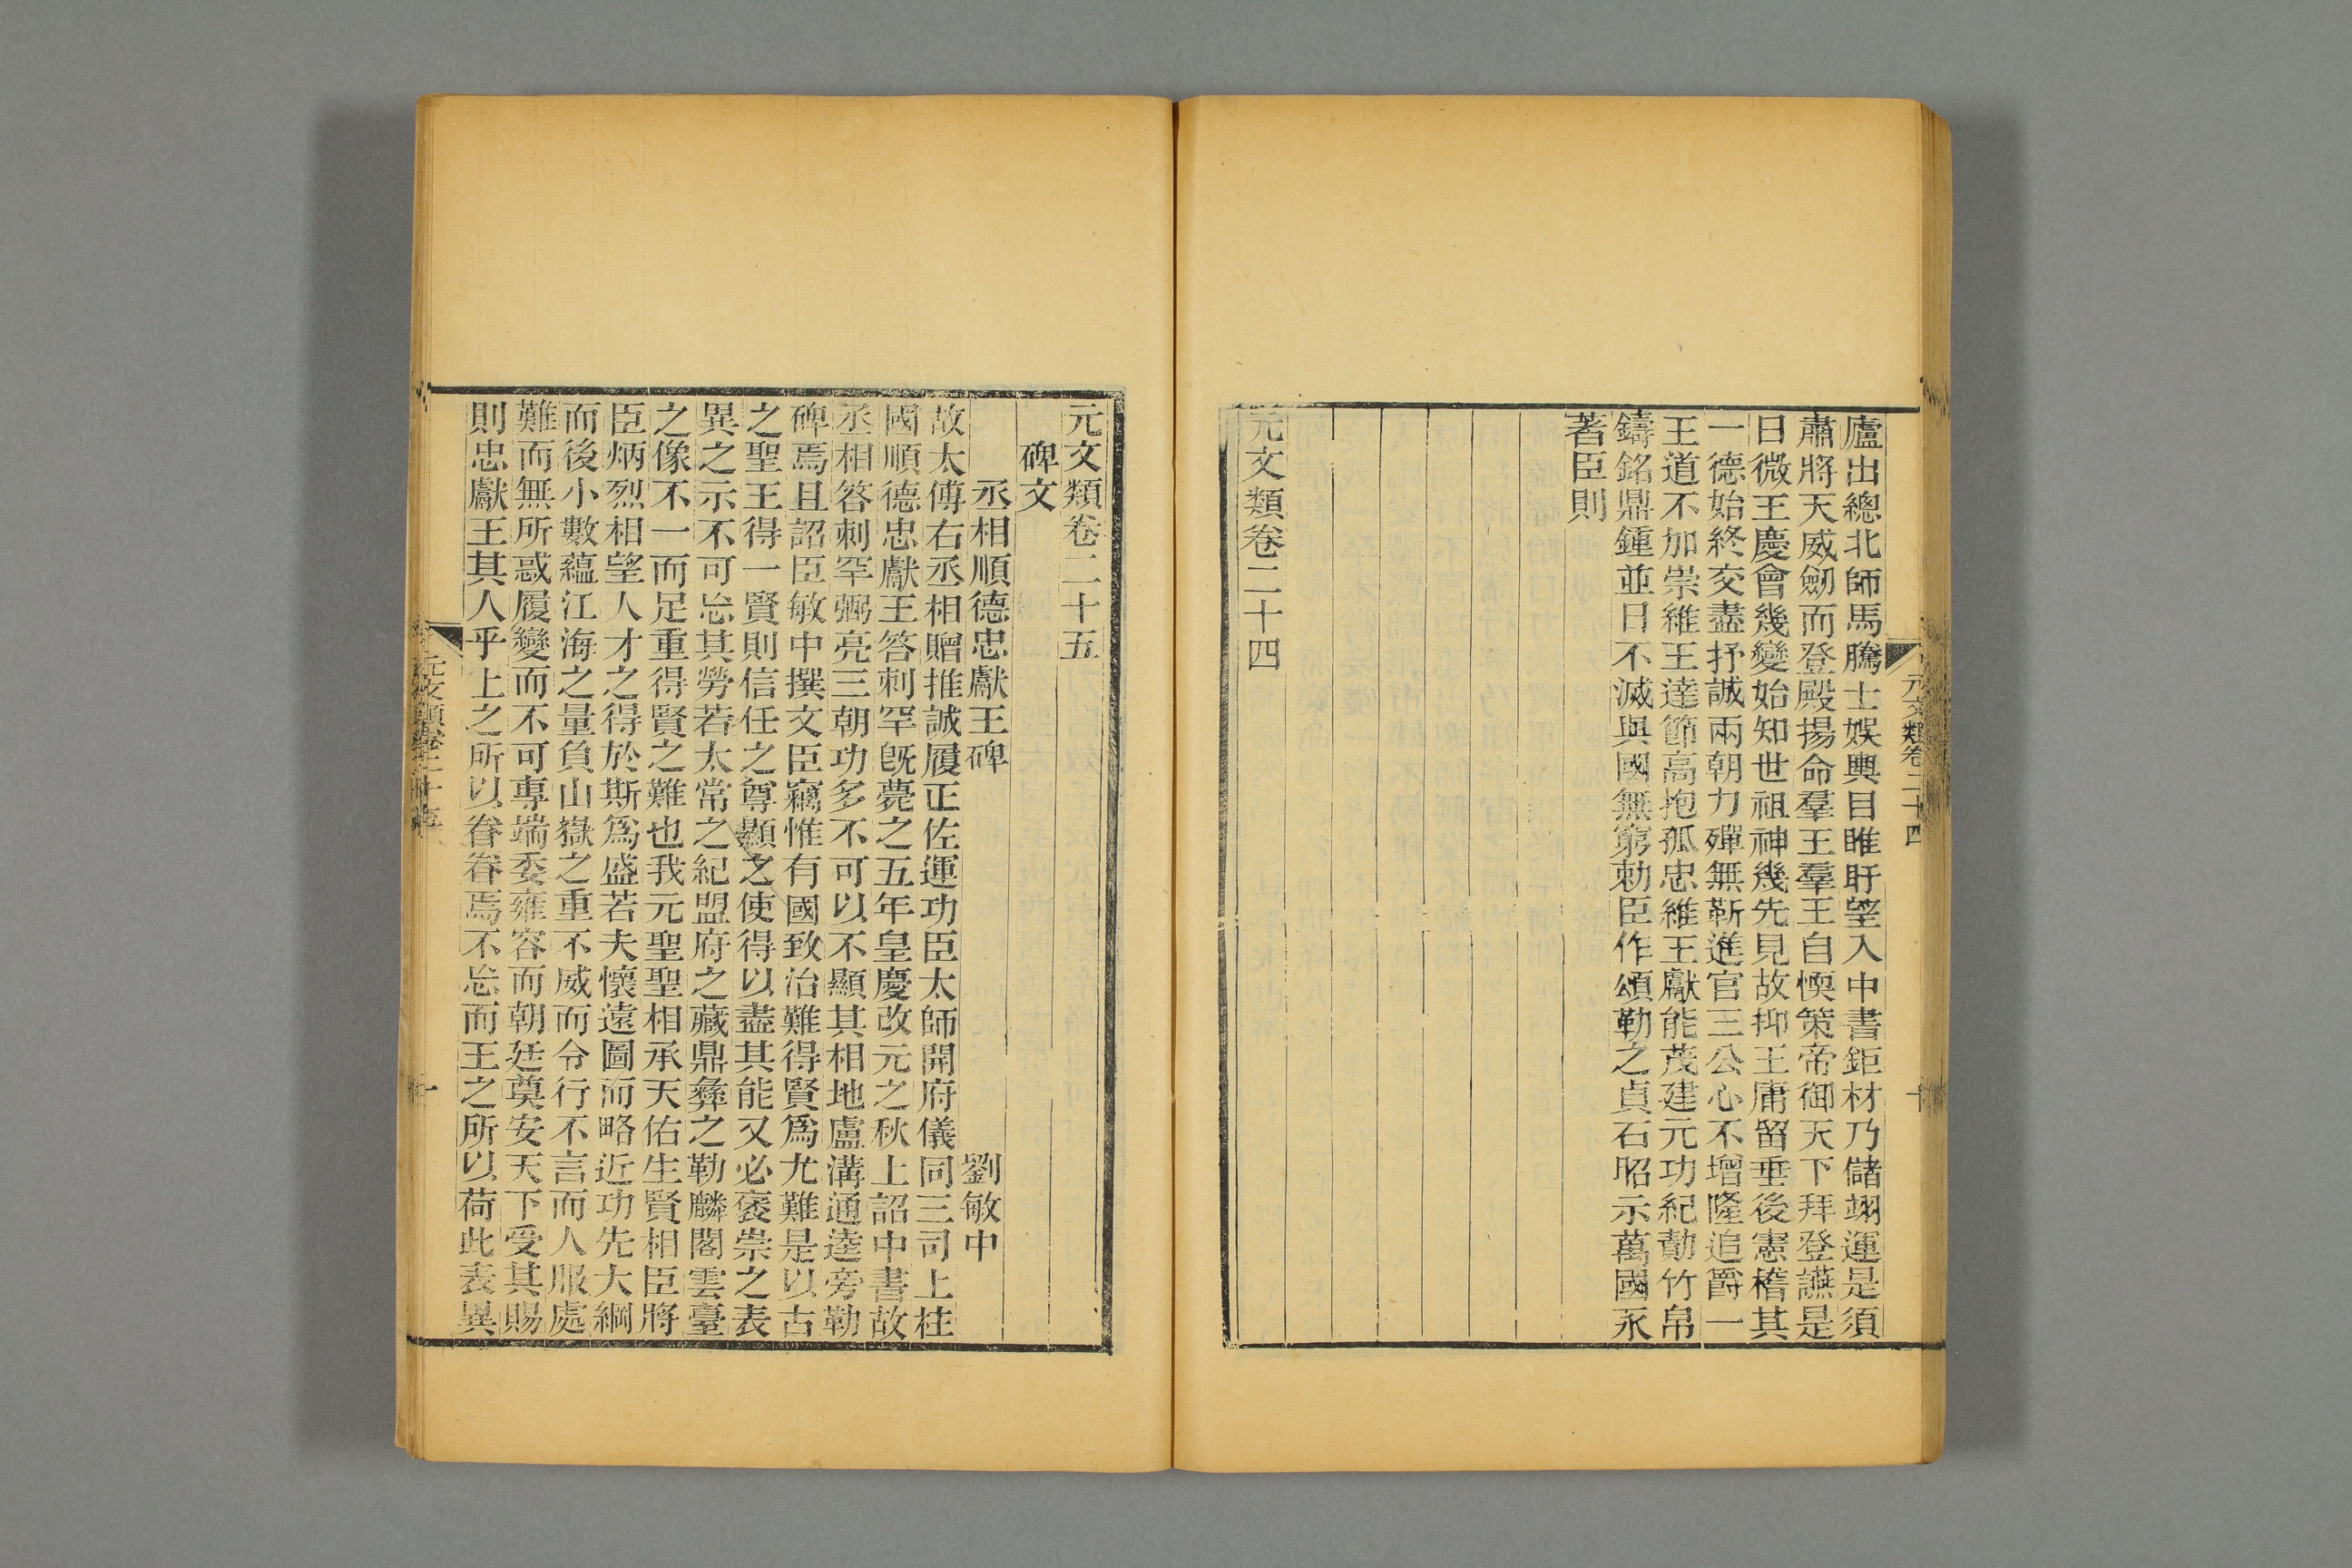 廬出總北師馬騰士娛輿目睢盱望入中書鉅材乃儲翊運是須
肅將天威劒而登殿揚命羣王羣王自愞策帝御天下拜登讌是
日微王慶會幾變始知世祖神幾先見故抑王庸留垂後憲稽其
一德始終交盡抒誠兩朝力殫無靳進官三公心不增隆追爵一
王道不加崇維王達節高抱孤忠維王獻能茂建元功紀勳竹帛
鑄銘鼎鍾並日不滅與國無窮勅臣作頌勒之貞石昭示萬國永
著臣則
元文類卷二十四
元文類卷二十四
十
元文類卷二十五
碑文
丞相順德忠獻王碑
劉敏中
故太傅右丞相贈推誠履正佐運功臣太師開府儀同三司上柱
國順德忠獻王答剌罕旣薨之五年皇慶改元之秋上詔中書故
丞相答剌罕弼亮三朝功多不可以不顯其相地盧溝通逵旁勒
碑焉且詔臣敏中撰文臣竊惟有國致治難得賢爲尤難是以古
之聖王得一賢則信任之尊顯之使得以盡其能又必褒崇之表
異之示不可忘其勞若太常之紀盟府之藏鼎彝之勒麟閣雲臺
之像不一而足重得賢之難也我元聖聖相承天佑生賢相臣將
臣炳烈相望人才之得於斯爲盛若夫懷遠圖而略近功先大綱
而後小數蘊江海之量負山嶽之重不威而令行不言而人服處
難而無所惑履變而不可專端委雍容而朝廷奠安天下受其賜
則忠獻王其人乎上之所以眷眷焉不忘而王之所以荷此表異
元文類卷二十五
一